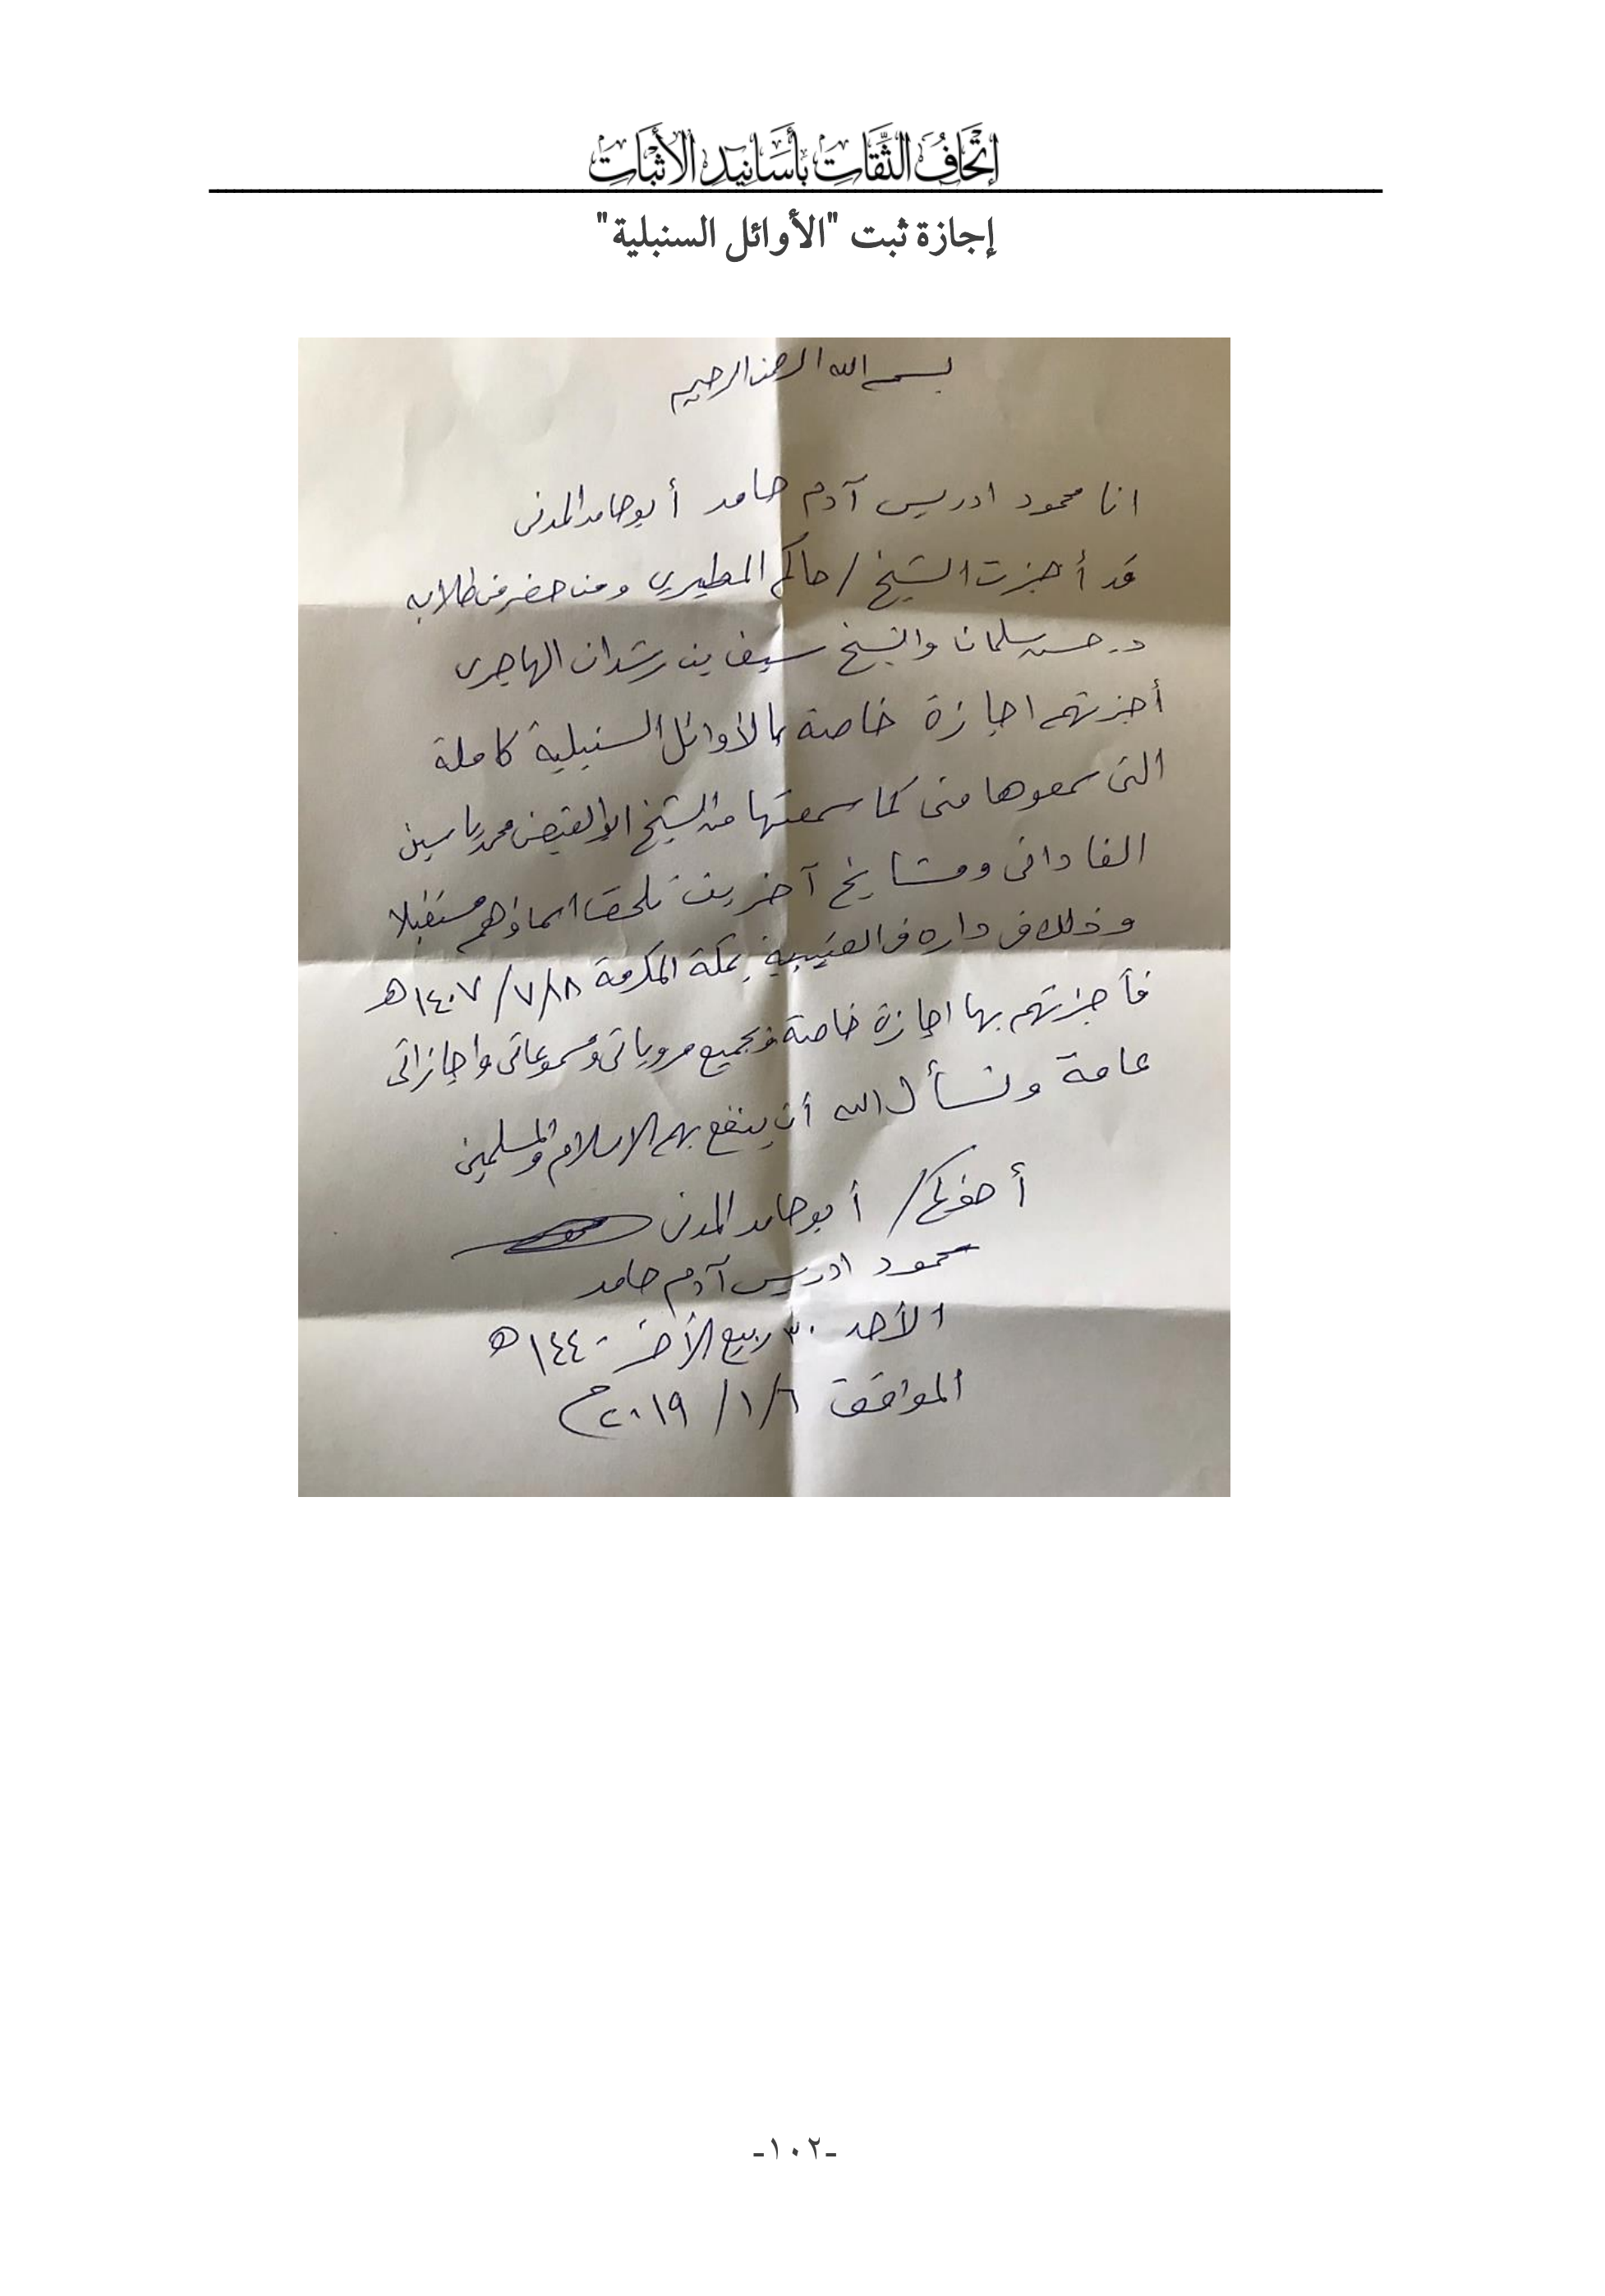 إِتْحَافُ الثِّقَاتِ بِأَسَانِيدِ الأَثْبَاتِ
إجازة ثبت "الأوائل السنبلية"
بسم الله الرحمن الرحيم
انا محمود ادريس آدم حامد أبو حامد المدنى
قد أجزت الشيخ / حاكم المطيري ومن حضر من طلابه
د. حسن سلمان والشيخ سيف بن رشدان الهاجرى
أجزتهم اجازة خاصة بالأوائل السنبلية كاملة
التى سمعوها منى كما سمعتها من الشيخ ابو الفيض محمد ياسين
الفادانى ومشايخ آخرين تلحق اسماؤهم مستقبلا
وذلك فى داره فى العتيبية بمكة المكرمة ١٨/٧/١٤٠٧هـ
فأجزتهم بها اجازة خاصة وبجميع مروياتى ومسموعاتى واجازاتى
عامة ونسأل الله أن ينفع بهم الاسلام والمسلمين
أخوكم / أبو حامد المدنى
محمود ادريس آدم حامد
الأحد ٣٠ ربيع الأخر ١٤٤٠هـ
الموافق ٦/١/٢٠١٩م
-١٠٢-